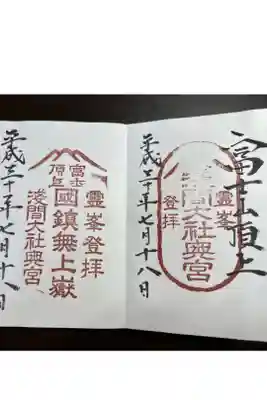 富士山頂上
靈峯
淺間大社奧宮
登拝
平成三十年七月十八日
靈峯登拝
富士
頂上
國鎮無上嶽
淺間大社奧宮
平成三十年七月十八日